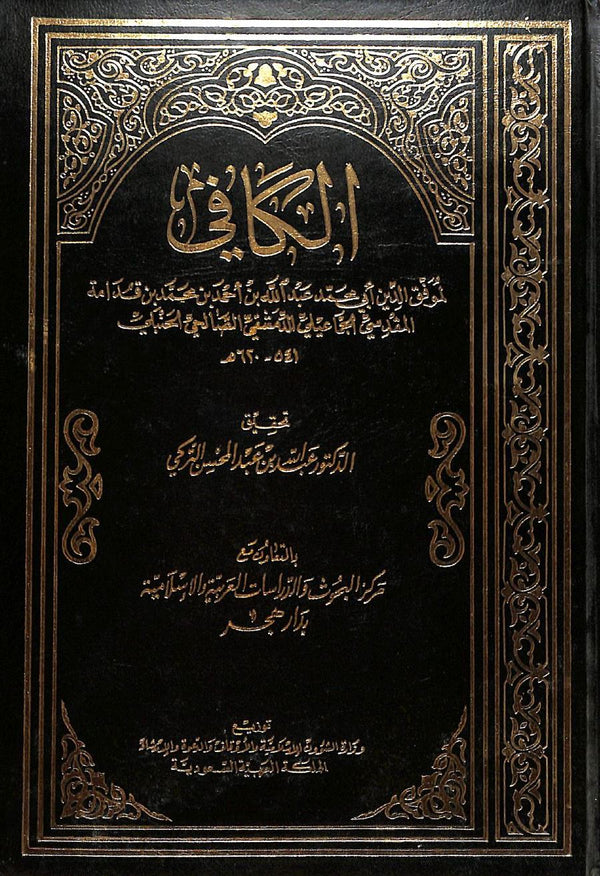 الكافي
لموفق الدين أبي محمد عبد الله بن أحمد بن محمد بن قدامة
المقدسي الجماعيلي الدمشقي الصالحي الحنبلي
٥٤١ - ٦٢٠هـ
تحقيق
الدكتور عبد الله بن عبد المحسن التركي
بالتعاون مع
مركز البحوث والدراسات العربية والإسلامية
بدار هجر
توزيع
وزارة الشؤون الإسلامية والأوقاف والدعوة والإرشاد
المملكة العربية السعودية